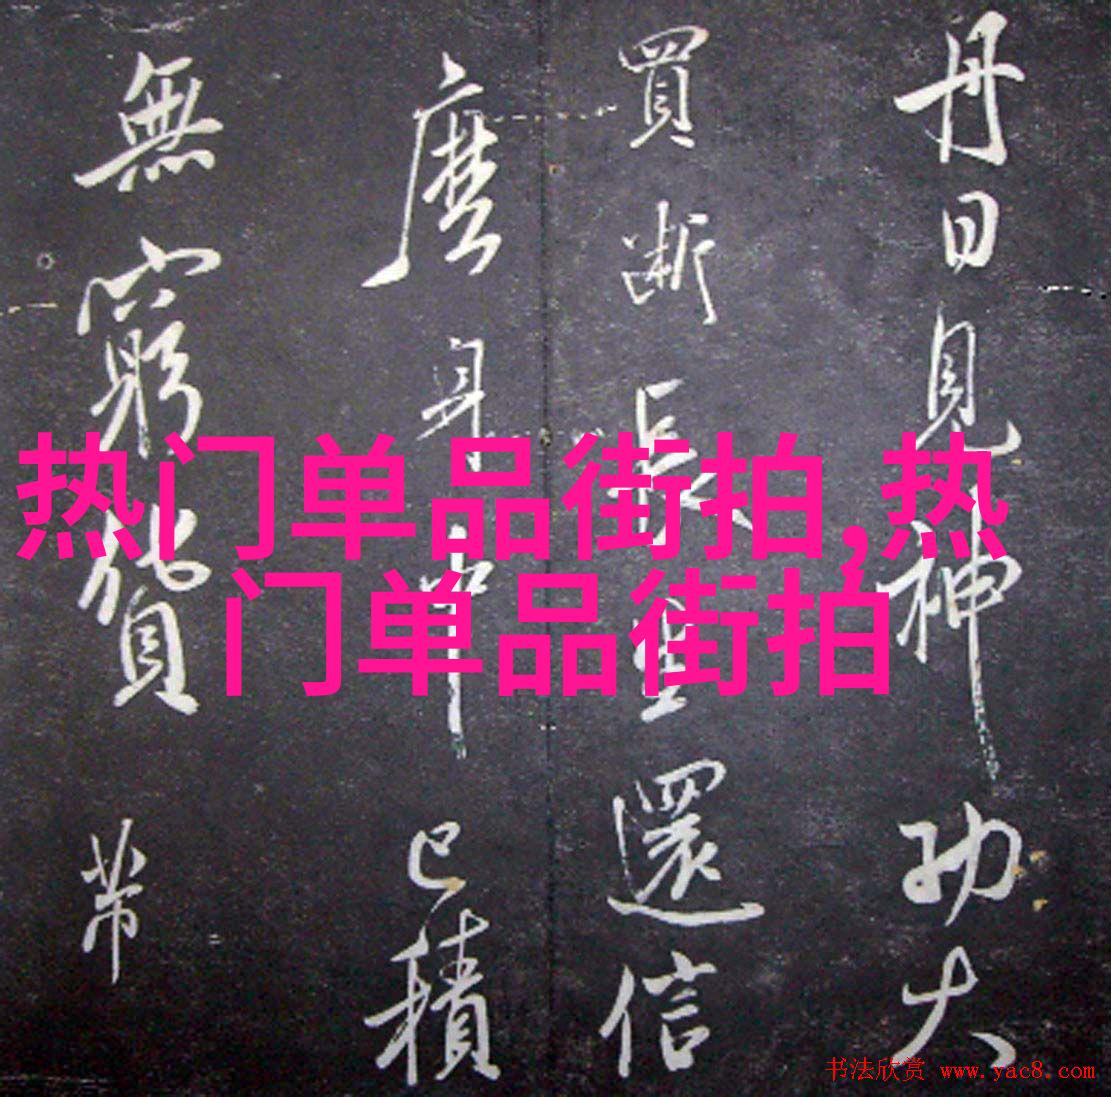 丹日見神功大
買斷長生還信
麽身中已積
無窮貨帶
热门单品街拍,热
门单品街拍
书法欣赏 www.yac8.com